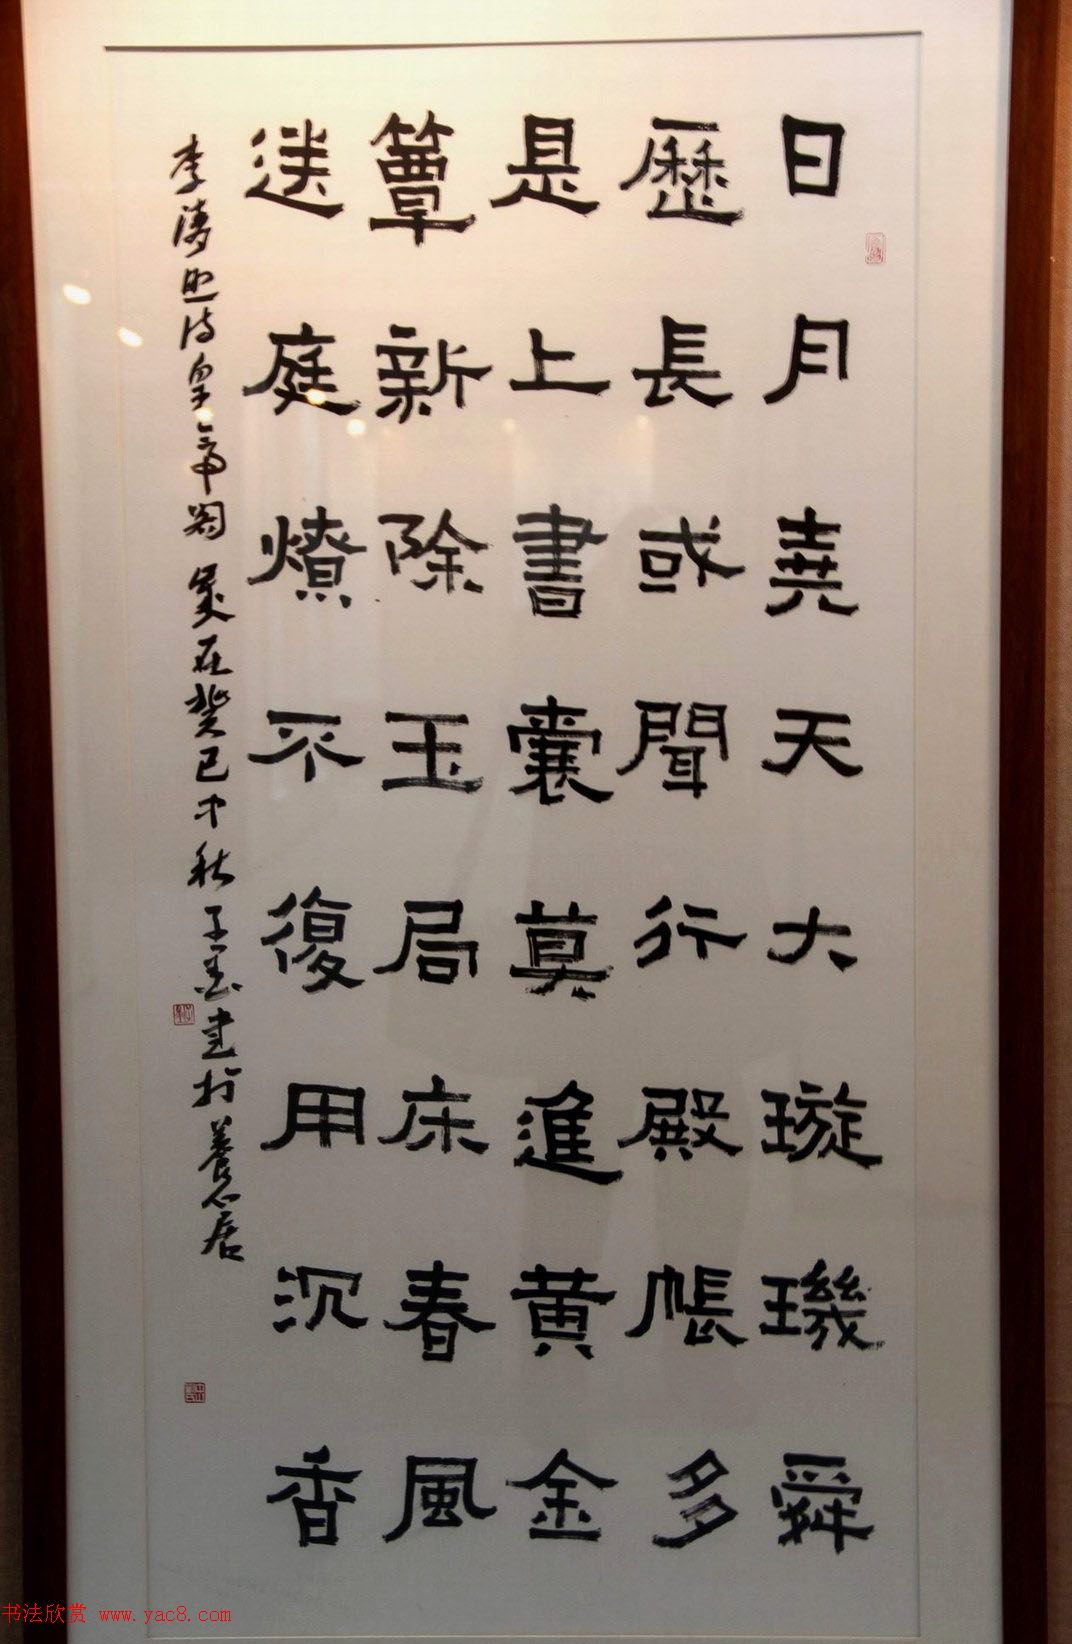 日月堯天大璇璣舜
歷長或聞行殿帳多
是上書囊莫進黄金
簟新除玉局床春風
送庭燎不復用沉香
李清照詩皇帝閣 歲在癸巳中秋子墨書於養心居
书法欣赏 www.yac8.com